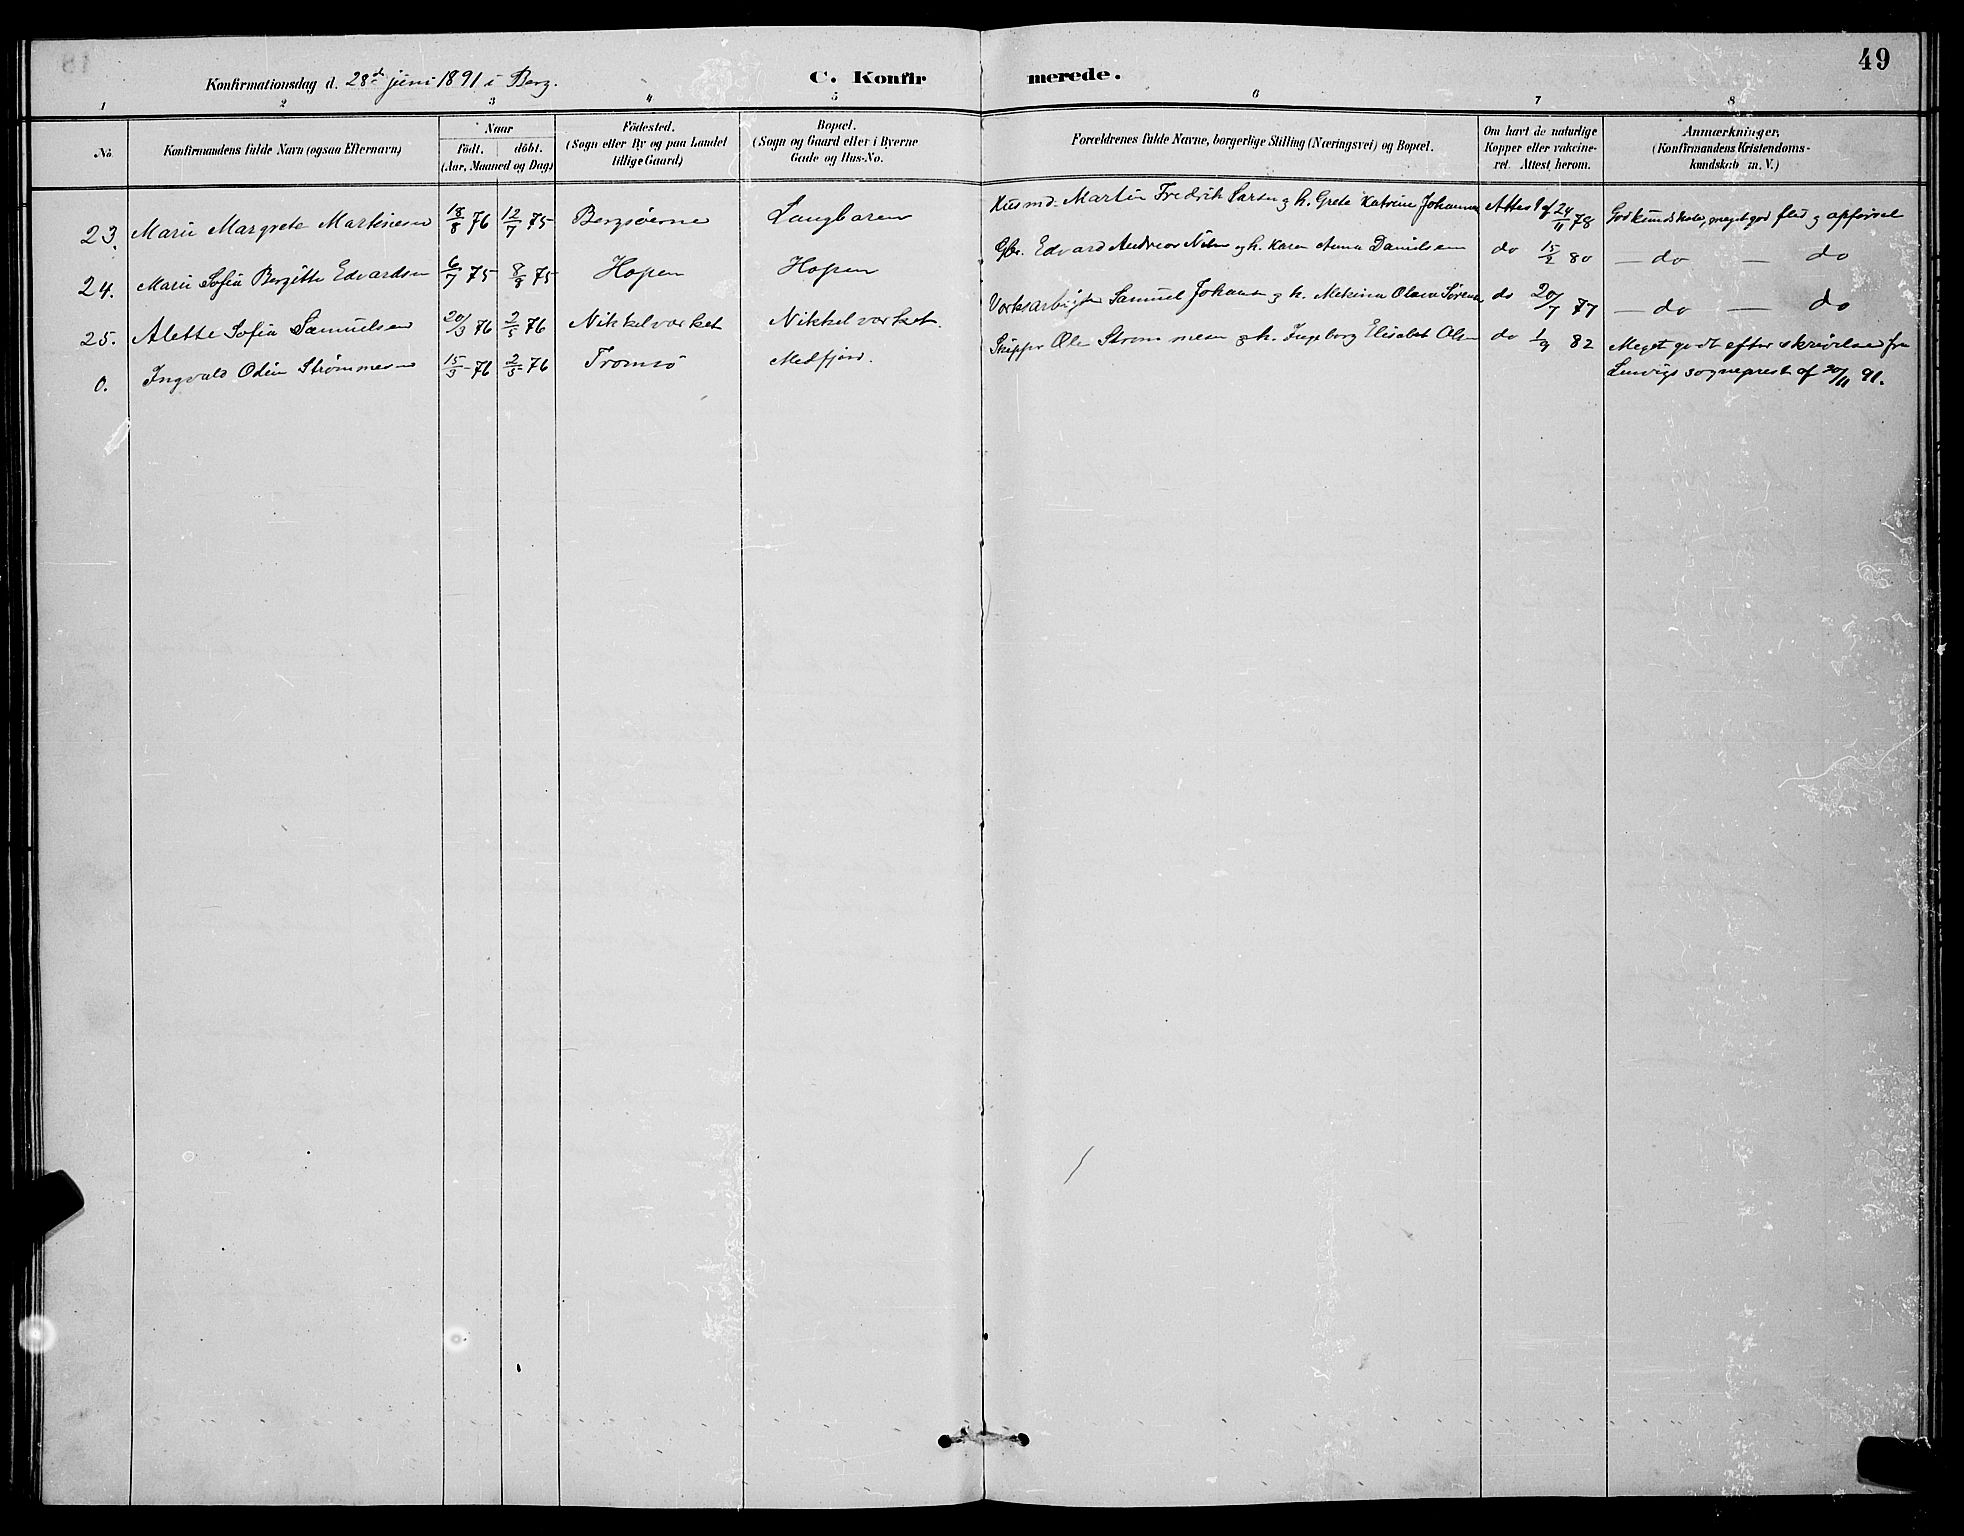 49
Konfirmationsdag d. 28de juni 1891 i Berg.
C. Konfirmerede.
1 2 3 4 5 6 7 8
No. Konfirmandens fulde Navn (ogsaa Efternavn) Naar födt. döbt. (Aar, Maaned og Dag) Födested. (Sogn eller By og paa Landet tillige Gaard) Bopæl. (Sogn og Gaard eller i Byerne Gade og Hus-No. Forældrenes fulde Navne, borgerlige Stilling (Næringsvei) og Bopæl. Om havt de naturlige Kopper eller vakcineret. Attest herom. Anmærkninger, (Konfirmandens Kristendomskundskab m. V.)
23. Marie Margrete Martinesen 18/8 76 12/7 75 Bergsöerne Langbaren Husmd. Martin Fredrik Larsen og h. Grete Katrine Johannesen Attest af 24/11 78 God kundskab, meget god flid og opförsel
24. Marie Sofia Bergitte Edvardsen 6/7 75 8/8 75 Hopen Hopen Gbr. Edvard Andreas Nilsen og h. Karen Anna Danielsen do 15/2 80 — do — do
25. Alette Sofia Samuelsen 20/3 76 2/5 76 Nikkelværket Nikkelværket. Værksarbejder Samuel Johansen og h. Metrina Olava Sørensen do 20/7 77 — do — do
0. Ingvald Odin Strømmesen 15/3 76 2/5 76 Tromsö Medfjord. Skipper Ole Strømmesen og h. Ingeborg Elisabet Olsen do 1/9 82 Meget godt efter skrivelse fra
Lenvigs sogneprest af 20/11 91.